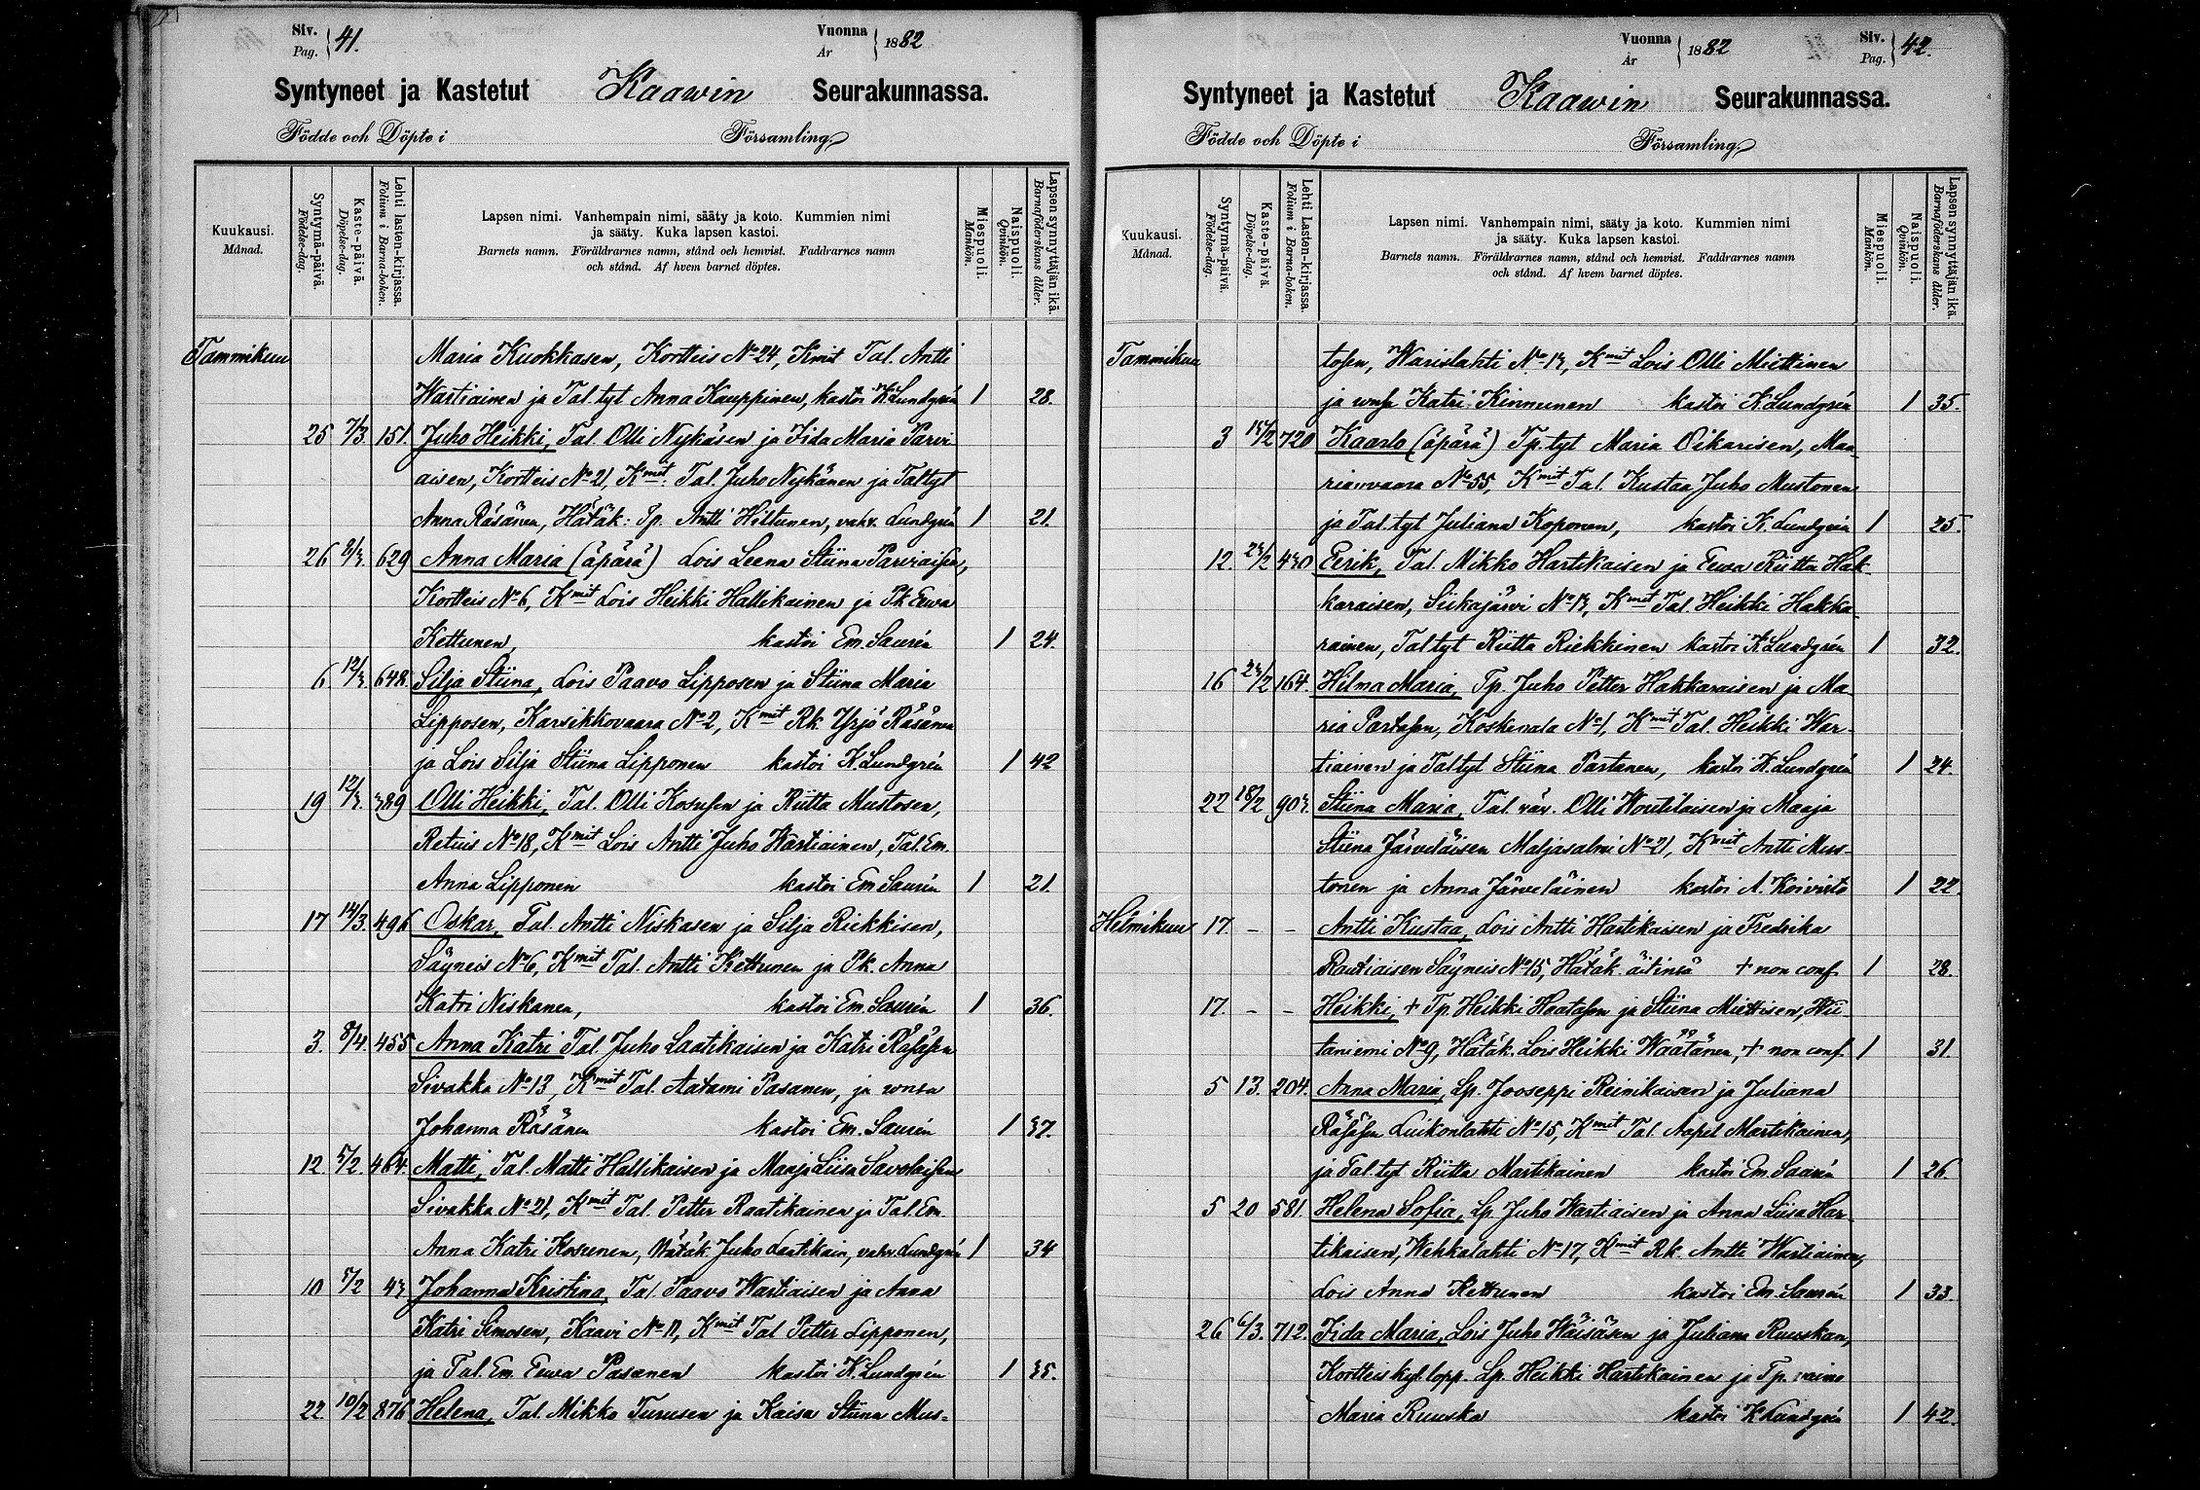 Siv.
Pag. 41.
Vuonna
År 1882
Syntyneet ja Kastetut Kaawin Seurakunnassa.
Födde och Döpte i Församling
Kuukausi.
Månad.
Syntymä-päivä.
Födelse-dag.
Kaste-päivä.
Döpelse-dag.
Lehti lasten-kirjassa.
Folium i Barna-boken.
Lapsen nimi. Vanhempain nimi, sääty ja koto. Kummien nimi
ja sääty. Kuka lapsen kastoi.
Barnets namn. Föräldrarnes namn, stånd och hemvist. Faddrarnes namn
och stånd. Af hvem barnet döptes.
Miespuoli.
Mankön.
Naispuoli.
Qvinkön.
Lapsen synnyttäjän ikä.
Barnaföderskans ålder.
Tammikuu Maria Kuokkasen, Kortteis No 24, Kmit Tal. Antti
Wartiainen ja Tal. tyt Anna Kauppinen, kastoi K. Lundgrén 1 28.
25 7/3. 151. Juho Heikki, Tal. Olli Nykäsen ja Iida Maria Parvi
aisen, Kortteis No 21, Kmit. Tal. Juho Nykänen ja Tal tyt
Anna Räsänen, Hätäk: Tp. Antti Hiltunen, vahv. Lundgrén 1 21.
26 8/3. 629 Anna Maria (äpärä) Lois Leena Stiina Parviaisen,
Kortteis No 6, Kmit Lois Heikki Hallikainen ja Pk Eewa
Kettunen, kastoi Em. Saurén 1 24.
6 12/3 648. Silja Stiina, Lois Paavo Lipposen ja Stiina Maria
Lipposen, Karsikkovaara No 2, Kmit Rk. Yrjö Räsänen
ja Lois Silja Stiina Lipponen kastoi K. Lundgrén 1 42
19 12/3. 389 Olli Heikki, Tal. Olli Kosusen ja Riitta Mustosen,
Retuis No 18, Kmit Lois Antti Juho Wartiainen, Tal. Em.
Anna Lipponen kastoi Em Saurén 1 21.
17 14/3. 496 Oskar, Tal. Antti Niskasen ja Silja Riekkisen,
Säyneis No 6, Kmit Tal. Antti Kettunen ja Pk. Anna
Katri Niskanen, kastoi Em. Saurén 1 36.
3. 8/4. 455 Anna Katri Tal. Juho Laatikaisen ja Katri Räsäsen
Sivakka No 13, Kmit Tal. Aatami Pasanen, ja wmsa
Johanna Räsänen kastoi Em. Saurén 1 37.
12. 5/2 464. Matti, Tal. Matti Hallikaisen ja Maaja Liisa Savolaisen
Sivakka No 21, Kmit Tal. Petter Raatikainen ja Tal. Em.
Anna Katri Kosunen, Hätäk. Juho Laatikain, vahv. Lundgrén 1 34
10 5/2 43 Johanna Kristina, Tal. Paavo Wartiaisen ja Anna
Katri Simosen, Kaavi No 11, Kmit Tal Petter Lipponen,
ja Tal. Em. Eewa Pasanen kastoi K. Lundgrén 1 35.
22 10/2 876 Helena, Tal. Mikko Turusen ja Kaisa Stiina Mus-
Vuonna
År 1882
Siv.
Pag. 42.
Syntyneet ja Kastetut Kaawin Seurakunnassa.
Födde och Döpte i Församling
Kuukausi.
Månad.
Syntymä-päivä.
Födelse-dag.
Kaste-päivä.
Döpelse-dag.
Lehti Lasten-kirjassa.
Folium i Barna-boken.
Lapsen nimi. Vanhempain nimi, sääty ja koto. Kummien nimi
ja sääty. Kuka lapsen kastoi.
Barnets namn. Föräldrarnes namn, stånd och hemvist. Faddrarnes namn
och stånd. Af hvem barnet döptes.
Miespuoli.
Mankön.
Naispuoli.
Qvinkön.
Lapsen synnyttäjän ikä.
Barnaföderskans ålder.
Tammikuu tosen, Warislahti No 13, Kmit Lois Olli Miettinen
ja wmsa Katri Kinnunen kastoi K. Lundgrén 1 35.
3 15/2 720 Kaarlo (äpärä) Tp. tyt Maria Oikarisen, Maa-
rianvaara No 55, Kmit Tal. Kustaa Juho Mustonen
ja Tal. tyt Juliana Koponen, kastoi K. Lundgrén 1 25.
12. 23/2 430 Eerik, Tal. Mikko Hartikaisen ja Eewa Riitta Hak-
karaisen, Siikajärvi No 13, Kmit Tal. Heikki Hakka-
rainen, Tal tyt Riitta Riekkinen kastoi K Lundgrén 1 32.
16 23/2 164. Hilma Maria, Tp. Juho Petter Hakkaraisen ja Ma-
ria Partasen, Koskenala No 1, Kmit Tal. Heikki War-
tiainen ja Tal tyt Stiina Partanen, kastoi K. Lundgrén 1 24.
22 18/2 903. Stiina Maria, Tal. väv. Olli Woutilaisen ja Maaja
Stiina Järveläisen Maljasalmi No 21, Kmit Antti Mus-
tonen ja Anna Järveläinen kastoi A. Koivisto 1 22.
Helmikuu 17. - - Antti Kustaa, Lois Antti Hartikaisen ja Fredrika
Rautiaisen Säyneis No 15, Hätäk. äitinsä + non conf 1 28.
17. - - Heikki, + Tp. Heikki Haatasen ja Stiina Miettisen, Wii-
taniemi No 9, Hätäk. Lois Heikki Wäätänen, + non conf. 1 31.
5 13. 204. Anna Maria, Lp. Jooseppi Reinikaisen ja Juliana
Räsäsen Luikonlahti No 15, Kmit Tal. Aapel Martikainen,
ja Tal. tyt Riitta Martikainen kastoi Em. Saurén 1 26.
5 20 581. Helena Sofia, Lp. Juho Wartiaisen ja Anna Liisa Har-
tikaisen, Wehkalahti No 17, Kmit Rk. Antti Wartiainen,
Lois Anna Kettunen kastoi Em. Saurén 1 33.
26 6/3. 712. Iida Maria, Lois Juho Wäisäsen ja Juliana Ruuskan,
Kortteis kyl. lopp. Lp. Heikki Hartikainen ja Tp. vaimo
Maria Ruuska kastoi K Lundgrén 1 42.